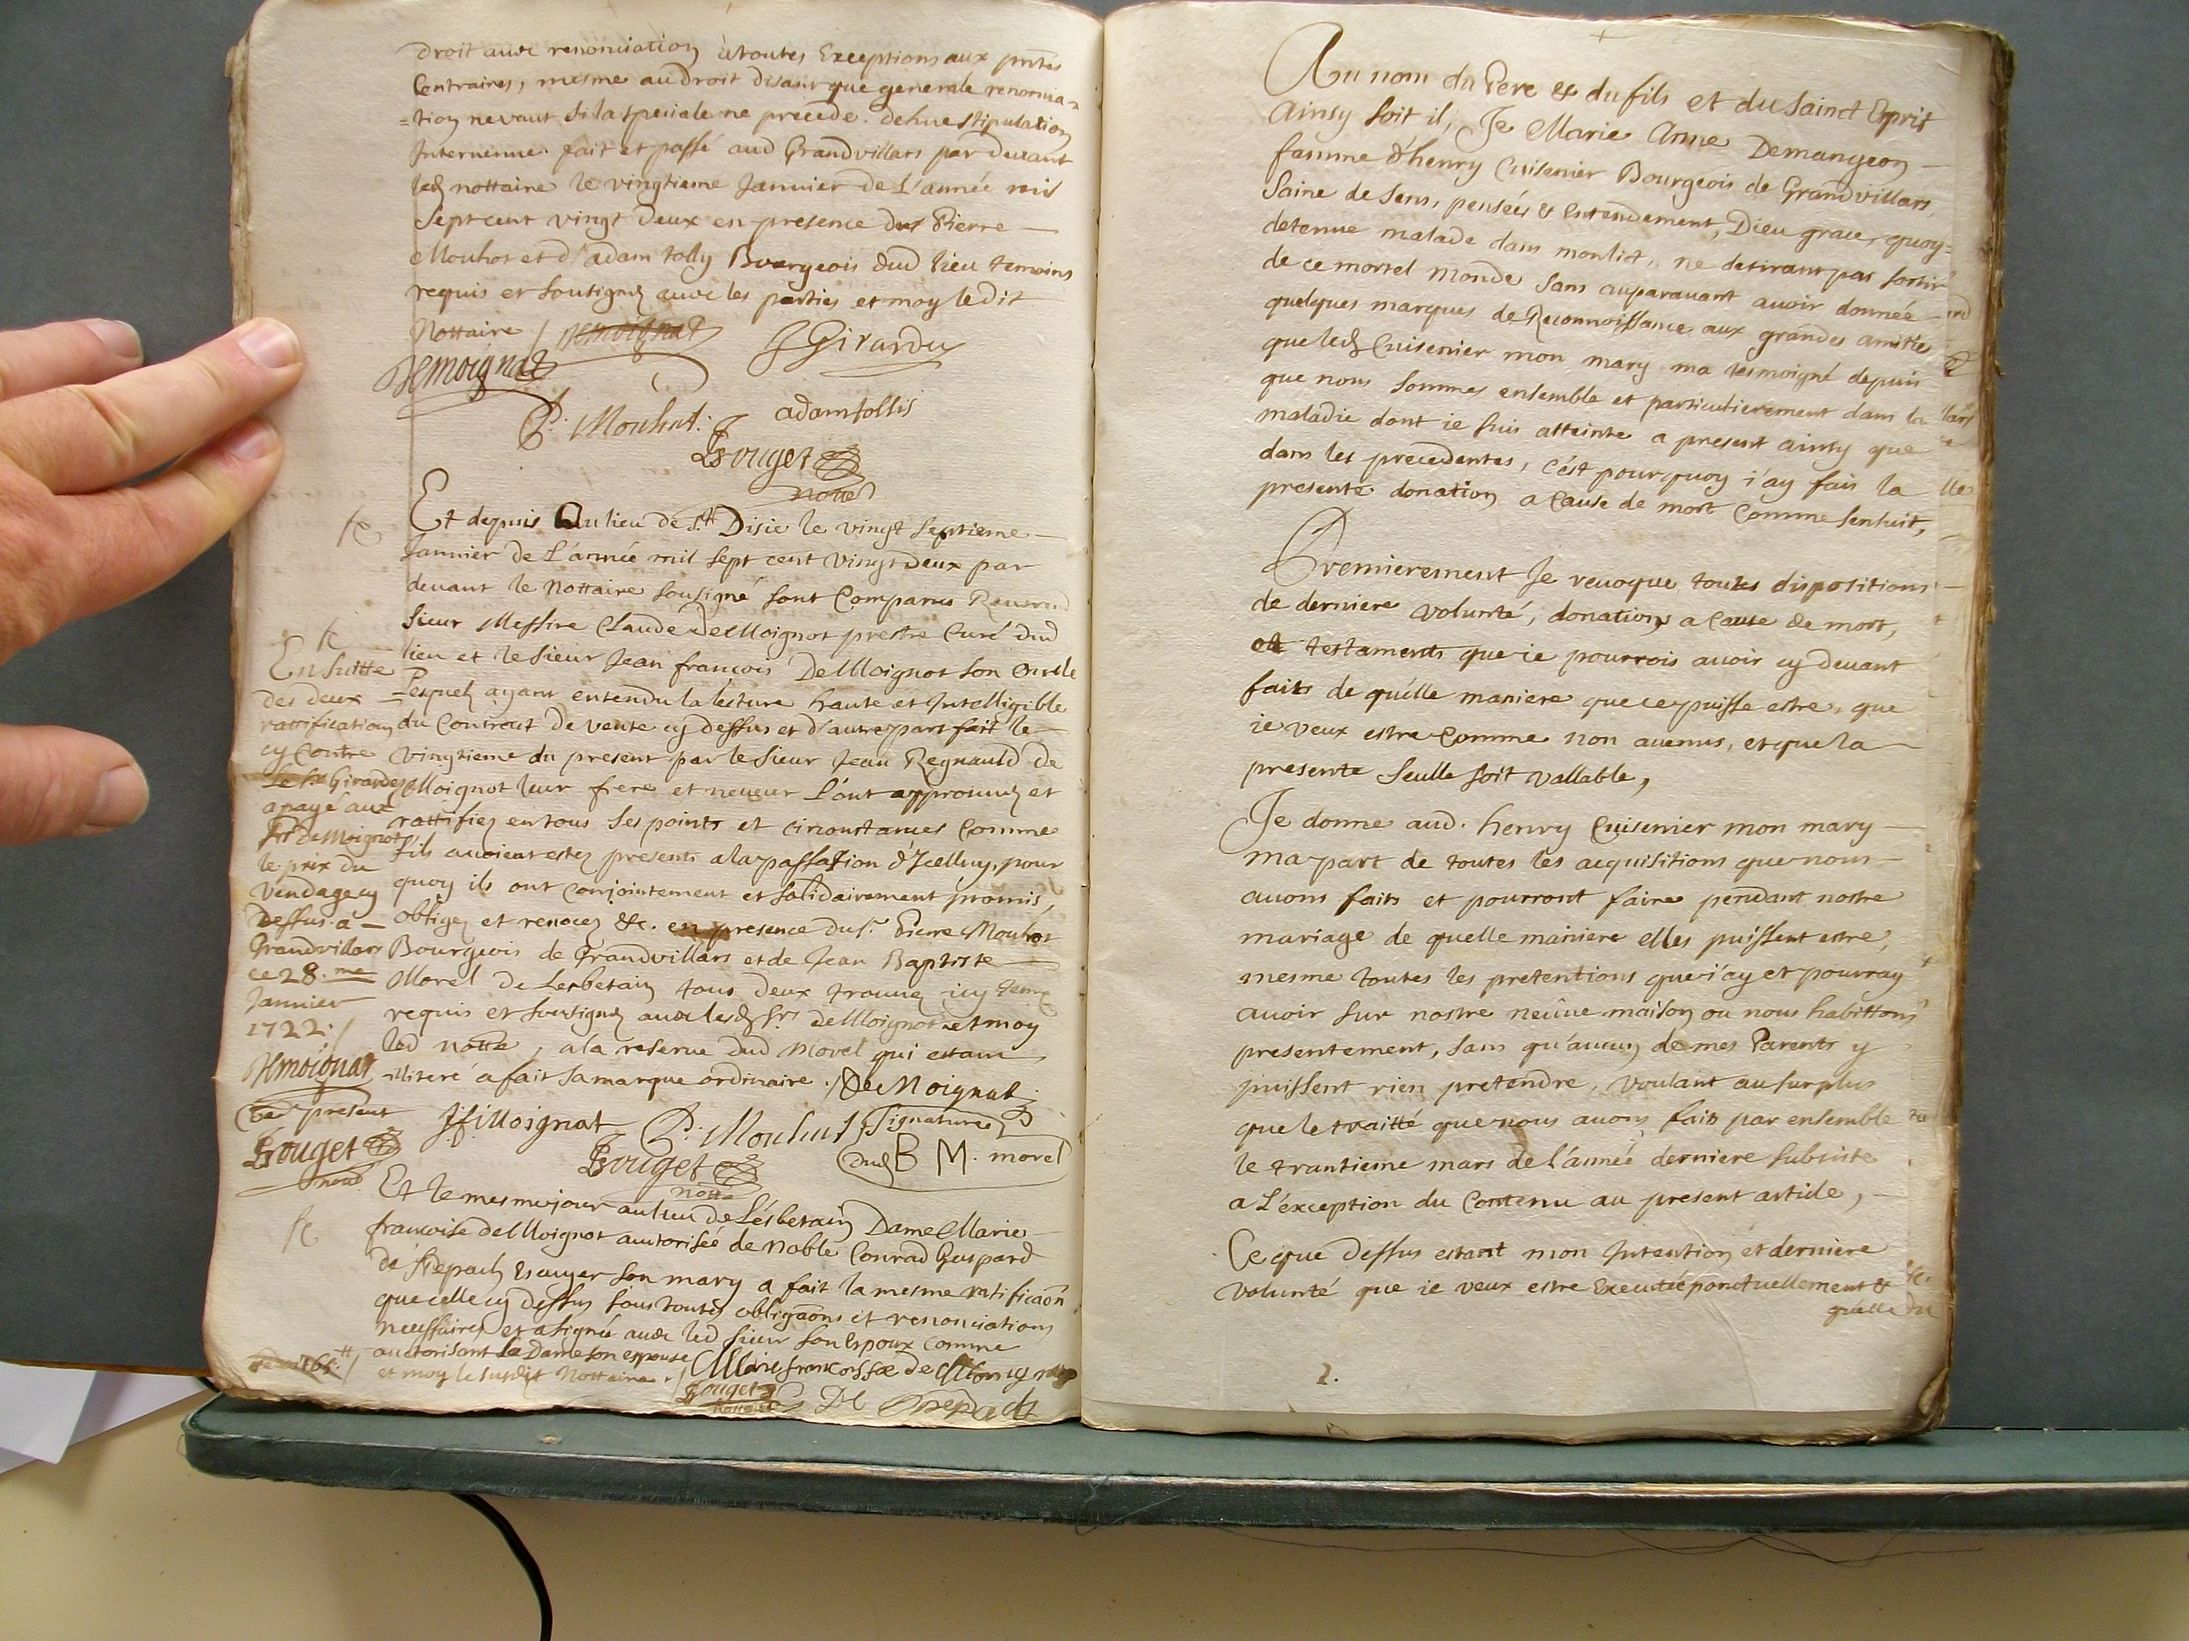 droit avec renonciation a toutes Exceptions aux pntes
Contraires, mesme au droit disant que generale renoncia=
=tion ne vaut si la speciale ne precede. dehue stipulation
Intervenue. fait et passé aud Grandvillars par devant
led nottaire le vingtieme Janvier de L'année mil
Sept cent vingt deux en presence du Sr Pierre
Mouhot et d'adam tolly Bourgeois dud lieu temoins
requis et sousignez avec les parties et moy le dit
Nottaire /
Demoignat
GGirardey
P. Mouhot.
adam tollis
Bouget
nottre
Et depuis Au lieu de St Disie le vingt Septieme
Janvier de L'année mil sept cent vingt deux par
devant le Nottaire sousigné sont Comparus Reverend
Sieur Messire Claude DeMoignot prestre Curé dud
lieu et le Sieur Jean françois DeMoignot son oncle
Lesquels ayant entendu la lecture haute et Intelligible
du Contract de vente cy dessus et d'autre part fait le
vingtieme du present par le Sieur Jean Regnauld de
Moignot leur frere et neveur L'ont approuvez et
rattifiez en tous ses points et circonstances Comme
s'ils avoient estez présents a la passation d'Icelluy, pour
quoy ils ont conjointement et solidairement promis,
obligez et renocez &c. en presence du Sr. Pierre Mouhot
Bourgeois de Grandvillars et de Jean Baptiste
Morel de Lesbetain tous deux trouvez icy
requis et sousignez avec lesd Srs deMoignot et moy
led notte, a la reserve dud Morel qui estant
illiteré a fait sa marque ordinaire. / De Moignat
JfMoignat P. Mouhot Signature
Bouget
notte
dud B M. morel
En suitte
des deux
rattifications
cy Contre
Le Sr Girardey
a payé aux
Srs DeMoignot
le prix du
Vendage cy
dessus. a
Grandvillars
ce 28.me
Janvier
1722. /
Demoignat
present
Bouget
nott
Et le mesme jour au lieu de Lesbetain Dame Marie
françoise deMoignot autorisée de Noble Conrad Gaspard
de Escuyer son mary a fait la mesme ratificaõn
que celle cy dessus sous toutes obligaõns et renonciations
necessaires et a signée avec led sieur son Espoux comme
auctorisant la Dame son espouse
et moy le susdit Nottaire. /
Marie francoisse de Moignat
Bouget
De
Au nom du Pere & du fils et du Sainct Esprit
Ainsy soit il; Je Marie Anne Demangeon
famme d'henry Cuisenier Bourgeois de Grandvillars,
Saine de Sens, pensées & Entendement, Dieu grace, quoy=
detenue malade dans mon lict, ne desirant pas sortir
de ce mortel monde sans auparavant avoir donnée
quelques marques de Reconnoissance aux grandes amities
que led Cuisenier mon mary ma tesmoigné depuis
que nous sommes ensemble et particulierement dans la
maladie dont je suis atteinte a present ainsy que
dans les precedentes, c'est pourquoy i'ay fais la
presente donation a Cause de mort Comme sensuit,
Premierement Je revoque toutes dispositions
de derniere volunté, donations a Cause de mort,
ou testaments que ie pourrois avoir cy devant
faits de qu'elle maniere que ce puisse estre, que
ie veux estre Comme non avenus, et que la
presente seulle soit vallable,
Je donne aud. henry Cuisenier mon mary
ma part de toutes les acquisitions que nous
avons faits et pourront faire pendant nostre
mariage de quelle maniere elles puissent estre,
mesme toutes les pretentions que i'ay et pourray
avoir sur nostre neûve maison ou nous habittons
presentement, sans qu'aucuns de mes Parents y
puissent rien pretendre, voulant au surplus
que le traitté que nous avons faits par ensemble
le trantieme mars de l'année derniere subsiste
a L'éxception du Contenu au present article,
Ce que dessus estant mon Intention et derniere
volunté que ie veux estre Executée ponctuellement &
quelle
2.